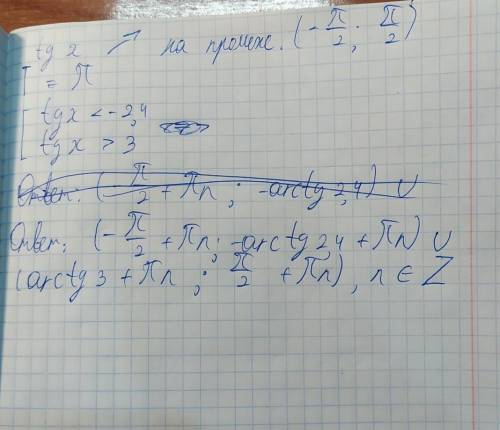 tg x ↗ на промеж. (-π/2; π/2)
T = π
[ tg x < -2,4
[ tg x > 3
Ответ: (-π/2 + πn; -arctg 2,4) ∪
Ответ: (-π/2 + πn; -arctg 2,4 + πn) ∪
(arctg 3 + πn; π/2 + πn), n ∈ Z